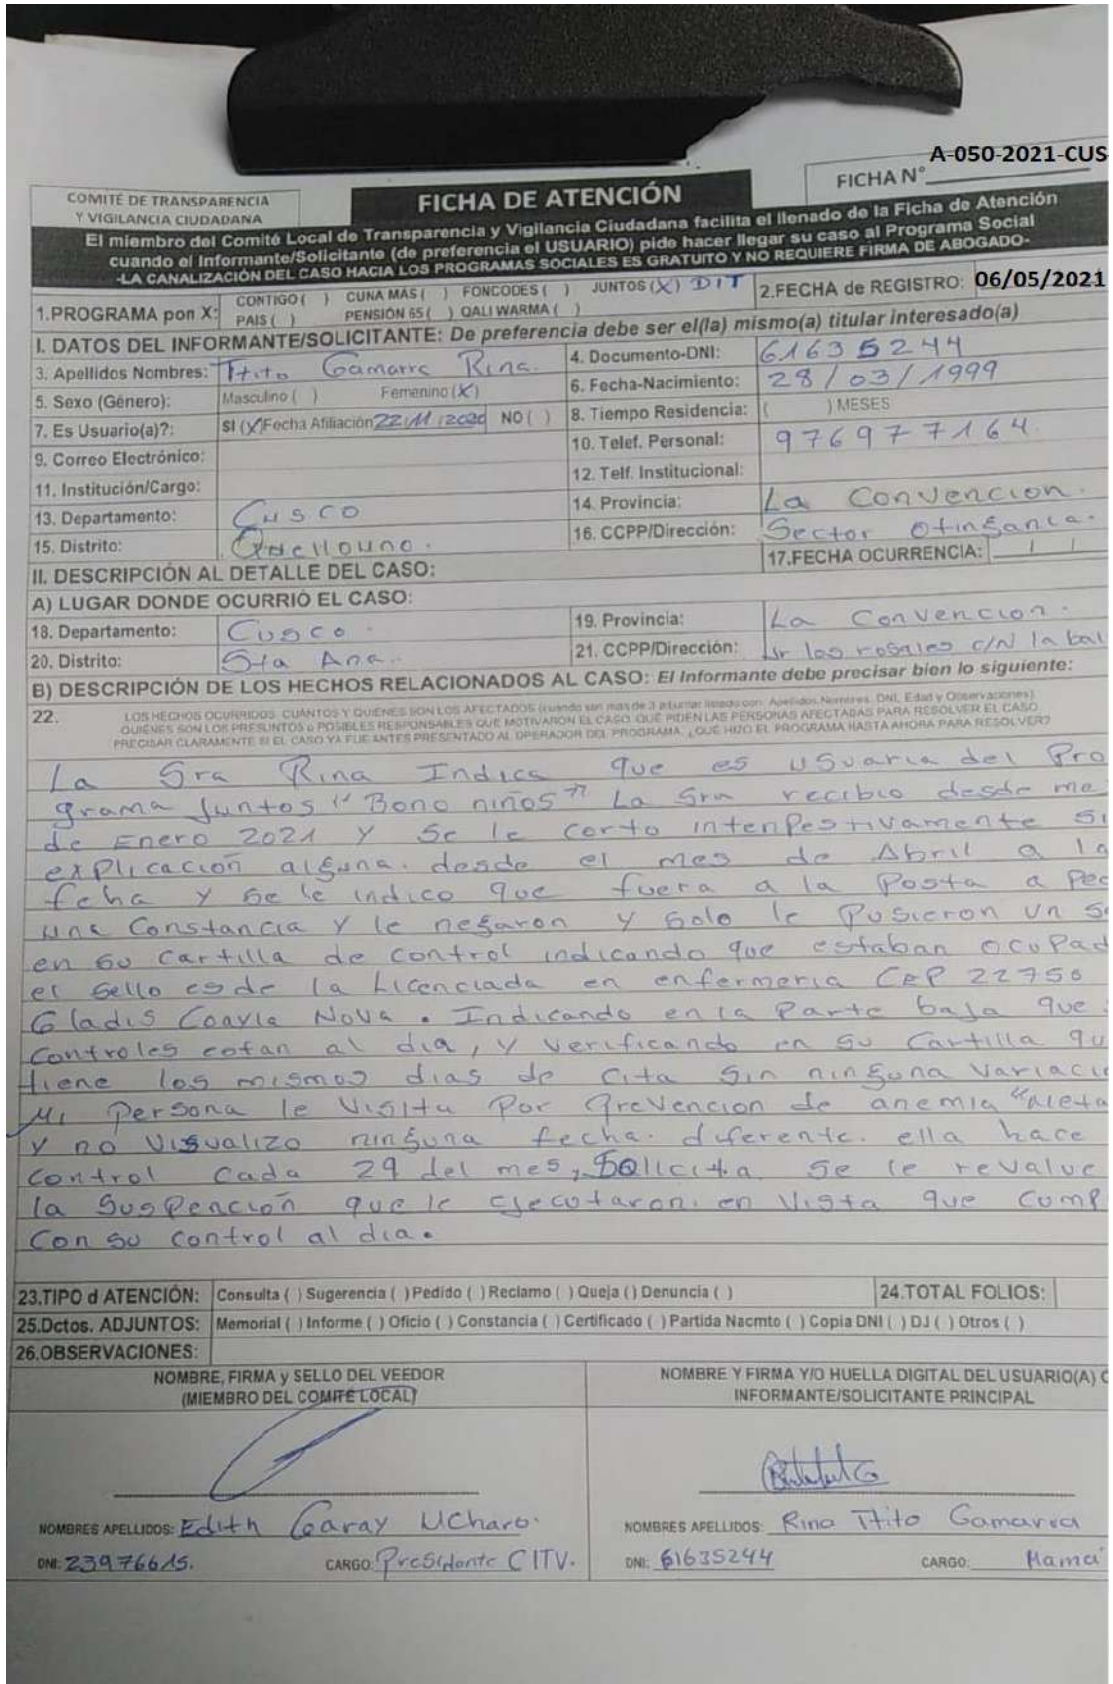 A-050-2021-CUS
FICHA N°
COMITÉ DE TRANSPARENCIA
Y VIGILANCIA CIUDADANA
FICHA DE ATENCIÓN
El miembro del Comité Local de Transparencia y Vigilancia Ciudadana facilita el llenado de la Ficha de Atención
cuando el Informante/Solicitante (de preferencia el USUARIO) pide hacer llegar su caso al Programa Social
-LA CANALIZACIÓN DEL CASO HACIA LOS PROGRAMAS SOCIALES ES GRATUITO Y NO REQUIERE FIRMA DE ABOGADO-
1.PROGRAMA pon X: CONTIGO ( ) CUNA MAS ( ) FONCODES ( ) JUNTOS (X) DIT 2.FECHA de REGISTRO: 06/05/2021
PAIS ( ) PENSIÓN 65 ( ) QALI WARMA ( )
I. DATOS DEL INFORMANTE/SOLICITANTE: De preferencia debe ser el(la) mismo(a) titular interesado(a)
3. Apellidos Nombres: Ttito Gamarra Rina. 4. Documento-DNI: 61635244
5. Sexo (Género): Masculino ( ) Femenino (X) 6. Fecha-Nacimiento: 28/03/1999
7. Es Usuario(a)?: SI (X) Fecha Afiliación 22/11/2020 NO ( ) 8. Tiempo Residencia: ( ) MESES
9. Correo Electrónico: 10. Telef. Personal: 976977164.
11. Institución/Cargo: 12. Telf. Institucional:
13. Departamento: Cusco 14. Provincia: La Convencion.
15. Distrito: Quellouno. 16. CCPP/Dirección: Sector Otingania.
II. DESCRIPCIÓN AL DETALLE DEL CASO: 17.FECHA OCURRENCIA: / /
A) LUGAR DONDE OCURRIÓ EL CASO:
18. Departamento: Cusco. 19. Provincia: La Convencion.
20. Distrito: Sta Ana. 21. CCPP/Dirección: Jr los rosales c/N la bal
B) DESCRIPCIÓN DE LOS HECHOS RELACIONADOS AL CASO: El Informante debe precisar bien lo siguiente:
22. LOS HECHOS OCURRIDOS, CUÁNTOS Y QUIÉNES SON LOS AFECTADOS (cuando son mas de 3 adjuntar listado con: Apellidos Nombres, DNI, Edad y Observaciones)
QUIÉNES SON LOS PRESUNTOS o POSIBLES RESPONSABLES QUE MOTIVARON EL CASO, QUÉ PIDEN LAS PERSONAS AFECTADAS PARA RESOLVER EL CASO.
PRECISAR CLARAMENTE SI EL CASO YA FUE ANTES PRESENTADO AL OPERADOR DEL PROGRAMA, ¿QUÉ HIZO EL PROGRAMA HASTA AHORA PARA RESOLVER?
La Sra Rina Indica que es usuaria del Pro
grama Juntos "Bono niños" La Sra recibio desde me
de Enero 2021 y se le corto intenpestivamente si
explicación alguna. desde el mes de Abril a la
fecha y se le indico que fuera a la Posta a Ped
una Constancia y le negaron y solo le Pusieron un Se
en su cartilla de control indicando que estaban ocupad
el sello es de la Licenciada en enfermeria CEP 22750
Gladis Coavla Nova. Indicando en la Parte baja que
controles estan al dia, y verificando en su Cartilla qu
tiene los mismos dias de cita sin ninguna variacio
Mi Persona le Visita Por Prevencion de anemia
y no visualizo ninguna fecha. diferente. ella hace
control cada 29 del mes, Solicita se le revalue
la Suspención que le ejecutaron. en Vista que Cump
Con su control al dia.
23.TIPO d ATENCIÓN: Consulta ( ) Sugerencia ( ) Pedido ( ) Reclamo ( ) Queja () Denuncia ( ) 24.TOTAL FOLIOS:
25.Dctos. ADJUNTOS: Memorial ( ) Informe ( ) Oficio ( ) Constancia ( ) Certificado ( ) Partida Nacmto ( ) Copia DNI ( ) DJ ( ) Otros ( )
26.OBSERVACIONES:
NOMBRE, FIRMA y SELLO DEL VEEDOR NOMBRE Y FIRMA Y/O HUELLA DIGITAL DEL USUARIO(A) O
(MIEMBRO DEL COMITÉ LOCAL) INFORMANTE/SOLICITANTE PRINCIPAL
NOMBRES APELLIDOS: Edith Garay Ucharo. NOMBRES APELLIDOS: Rina Ttito Gamarra
DNI: 23976615. CARGO: Presidente CITV. DNI: 61635244 CARGO: Mamá